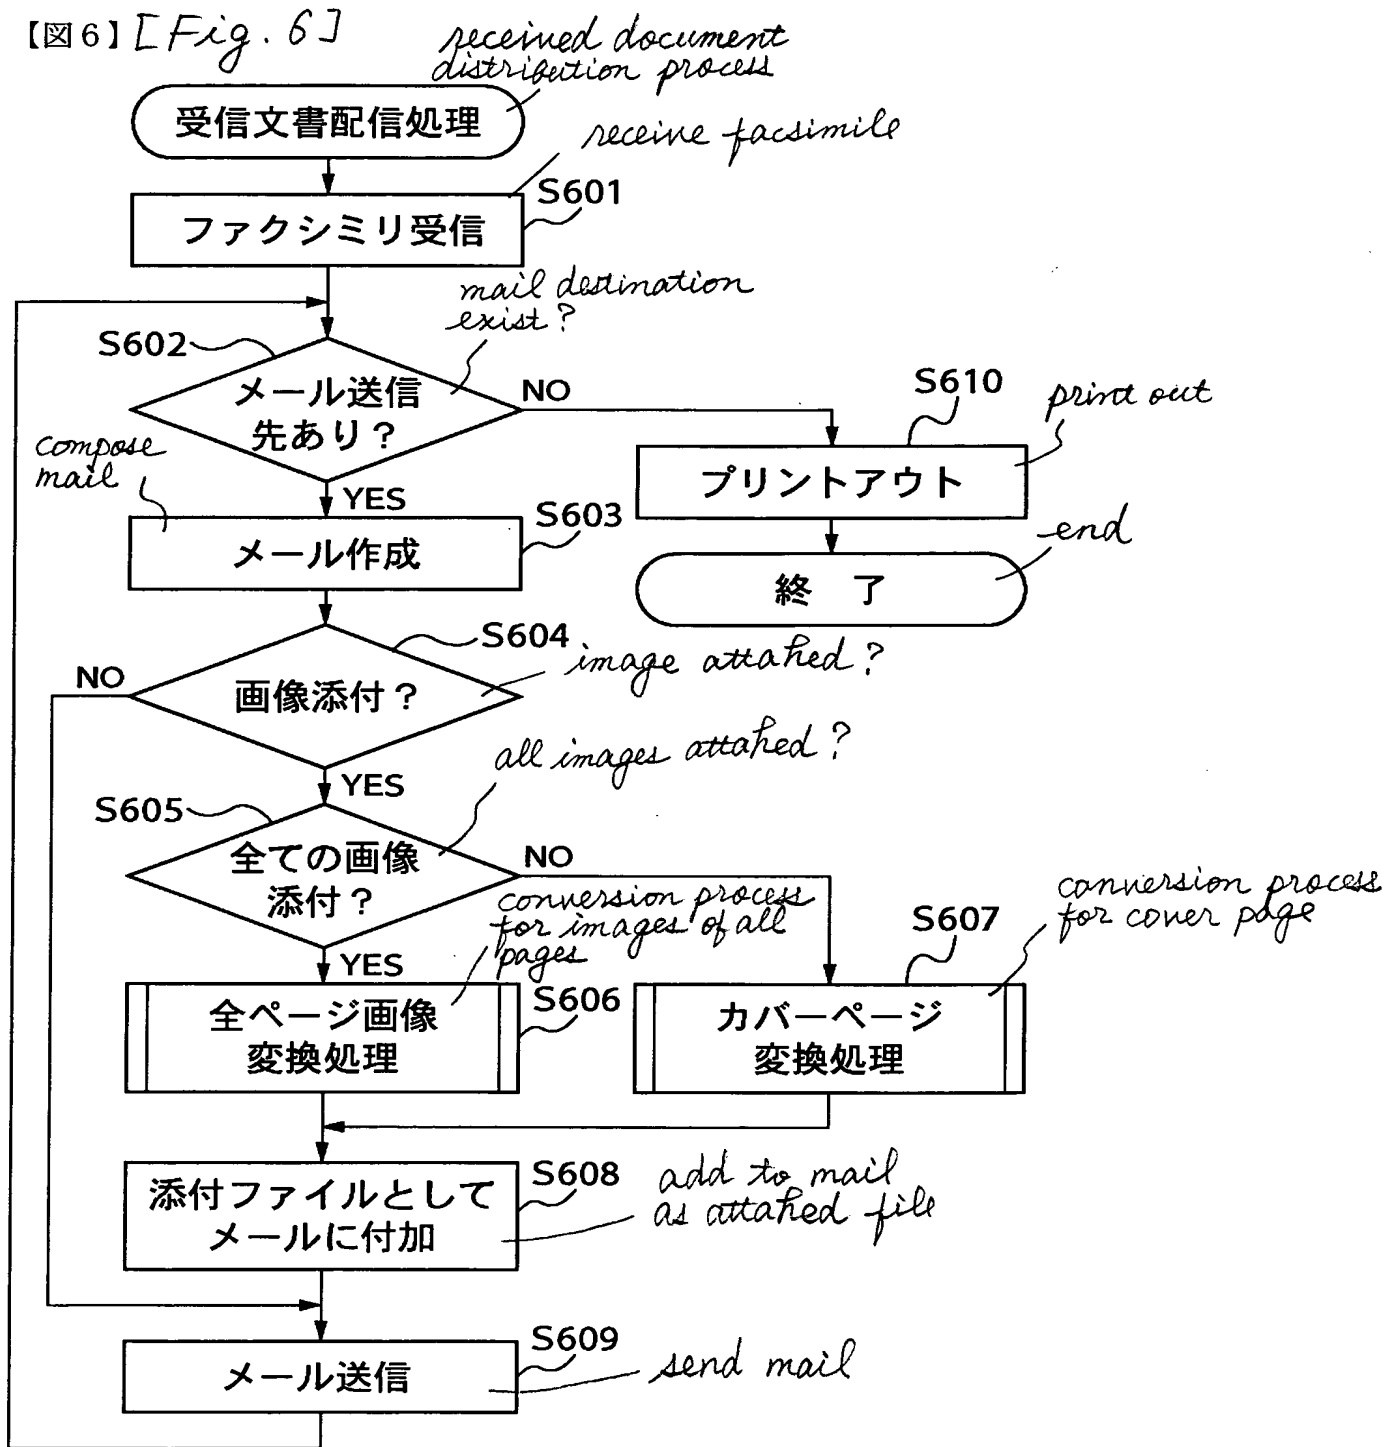 【図6】[Fig. 6]
received document
distribution process
受信文書配信処理
receive facsimile
S601
ファクシミリ受信
mail destination
exist?
S602
メール送信
先あり?
NO
S610
print out
プリントアウト
compose
mail
YES
S603
メール作成
end
終 了
S604
image attahed?
NO
画像添付?
all images attahed?
YES
S605
全ての画像
添付?
NO
conversion process
for images of all
pages
conversion process
for cover page
S607
YES
S606
全ページ画像
変換処理
カバーページ
変換処理
S608
添付ファイルとして
メールに付加
add to mail
as attahed file
S609
メール送信
send mail